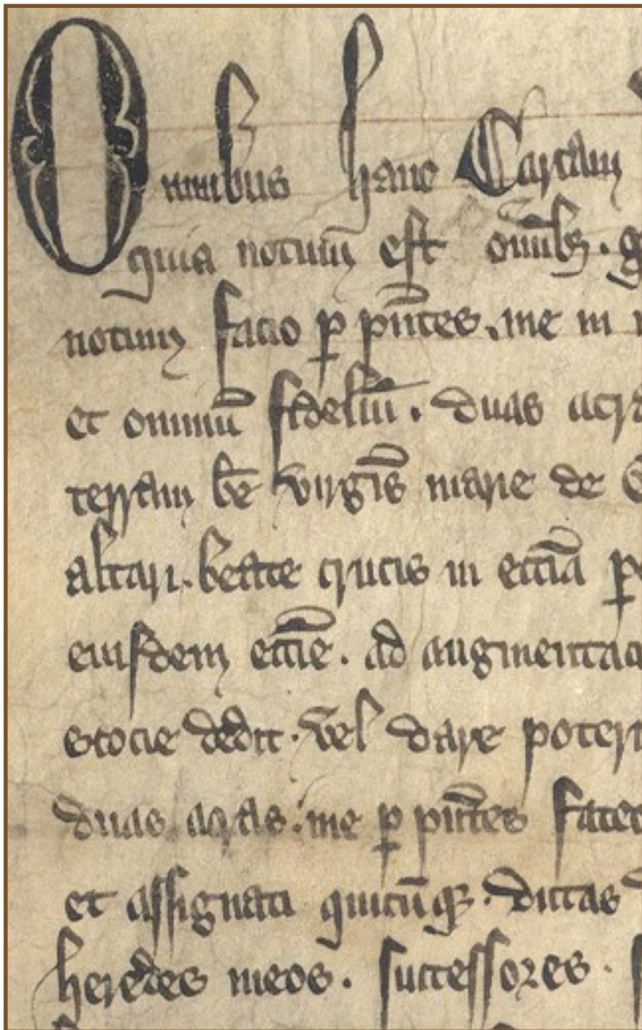 Omnibus hanc Cartam
quia notum est om̄ib3 . g
notum facio p̱ pn̄tes . me in
et omniū fideliū . duas acr
terram bē virgīs marie de
altari . beate crucis in ecc̄ia p̱
eiusdem ecc̄ie . ad augmentac
stocie dedit . vel dare poter
duas acras . me p̱ pn̄tes fate
et assignati quicūq3 . dictas
heredes meos . successores .